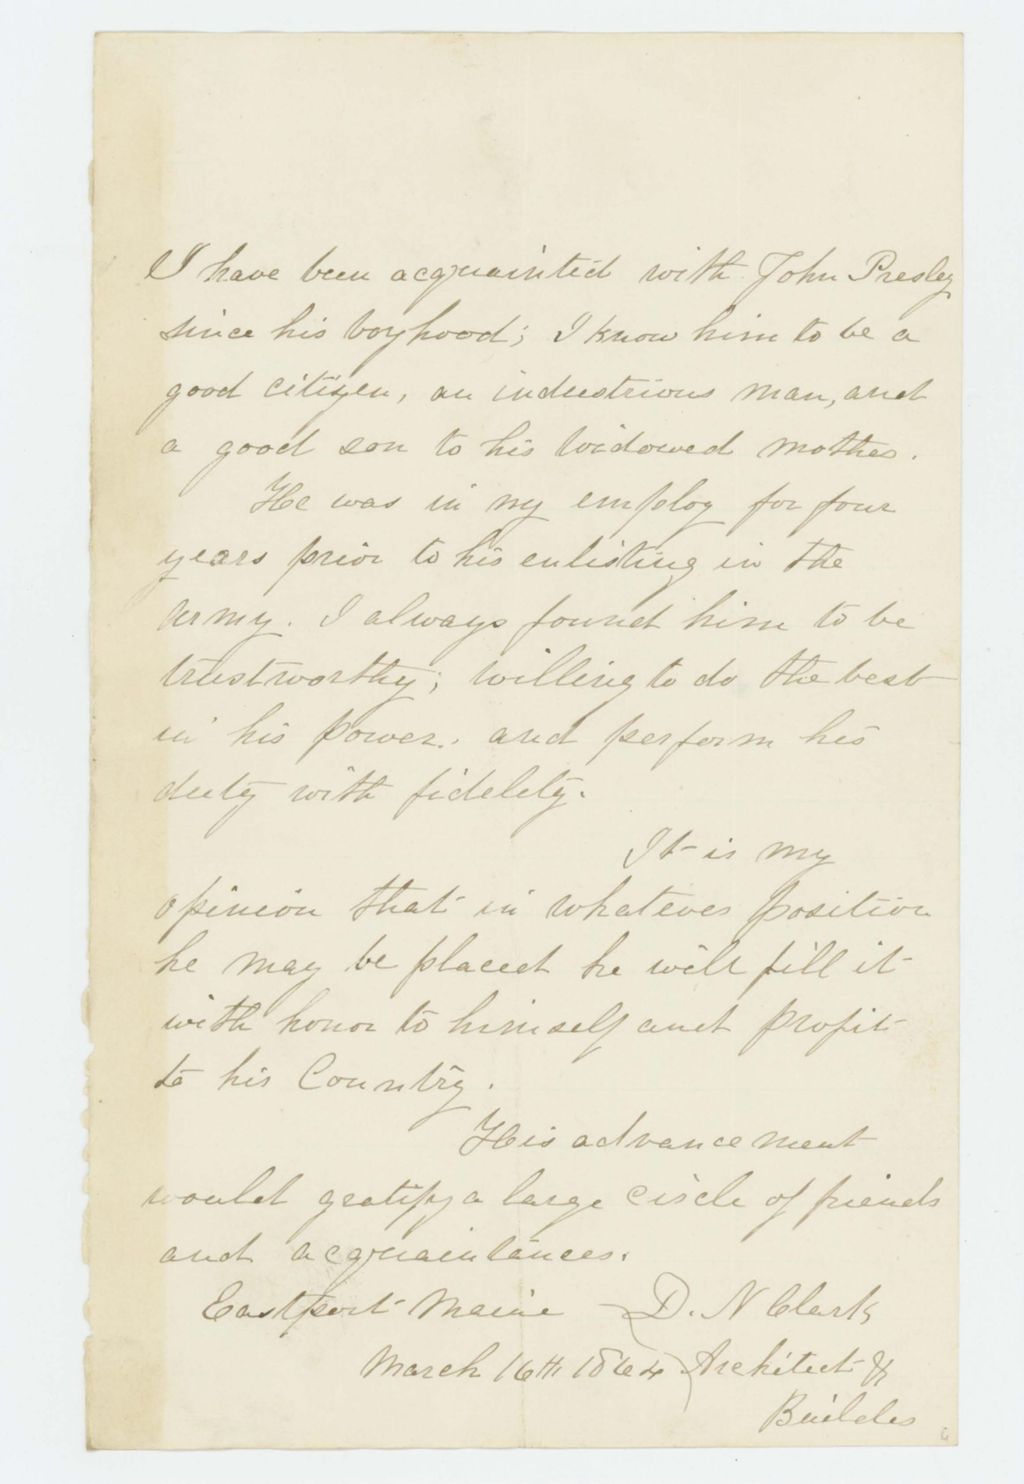 I have been acquainted with John Presley
since his boyhood; I know him to be a
good citizen, an industrious man, and
a good son to his widowed mother.
He was in my employ for four
years prior to his enlisting in the
Army. I always found him to be
trustworthy; willing to do the best
in his power. and perform his
duty with fidelity.
It is my
opinion that in whatever position
he may be placed he will fill it
with honor to himself and profit
to his Country.
His advancement
would gratify a large circle of friends
and acquaintances.
Eastport Maine D. N Clark
March 16th 1864 Architect &
Builder